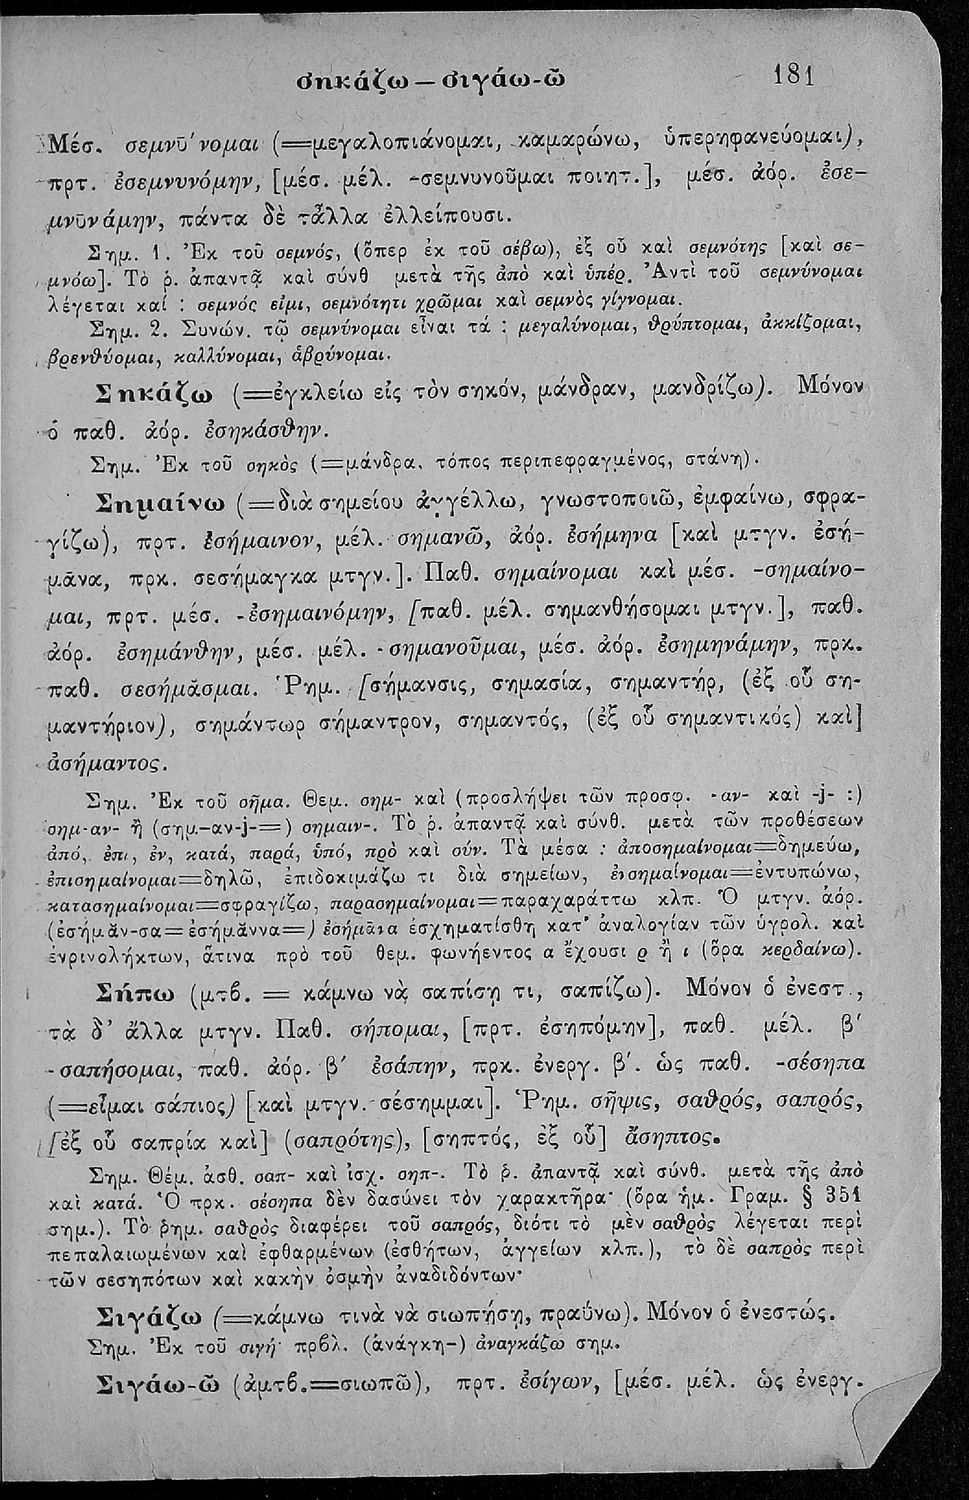 σηκάζω — σιγάω-ῶ 181
Μέσ. σεμνῡ́νομαι (=μεγαλοπιάνομαι, καμαρώνω, ὑπερηφανεύομαι),
πρτ. ἐσεμνυνόμην, [μέσ. μέλ. -σεμνυνοῦμαι ποιητ.], μέσ. ἀόρ. ἐσε-
μνῡνάμην, πάντα δὲ τἆλλα ἐλλείπουσι.
Σημ. 1. Ἐκ τοῦ σεμνός, (ὅπερ ἐκ τοῦ σέβω), ἐξ οὗ καὶ σεμνότης [καὶ σε-
μνόω]. Τὸ ῥ. ἀπαντᾷ καὶ σύνθ μετὰ τῆς ἀπὸ καὶ ὑπέρ. Ἀντὶ τοῦ σεμνύνομαι
λέγεται καί : σεμνός εἰμι, σεμνότητι χρῶμαι καὶ σεμνὸς γίγνομαι.
Σημ. 2. Συνών. τῷ σεμνύνομαι εἶναι τά : μεγαλύνομαι, θρύπτομαι, ἀκκίζομαι,
βρενθύομαι, καλλύνομαι, ἁβρύνομαι.
Σηκάζω (=ἐγκλείω εἰς τὸν σηκόν, μάνδραν, μανδρίζω). Μόνον
ὁ παθ. ἀόρ. ἐσηκάσθην.
Σημ. Ἐκ τοῦ σηκὸς (=μάνδρα, τόπος περιπεφραγμένος, στάνη).
Σημαίνω (=διὰ σημείου ἀγγέλλω, γνωστοποιῶ, ἐμφαίνω, σφρα-
γίζω), πρτ. ἐσήμαινον, μέλ. σημανῶ, ἀόρ. ἐσήμηνα [καὶ μτγν. ἐσή-
μᾱνα, πρκ. σεσήμαγκα μτγν.]. Παθ. σημαίνομαι καὶ μέσ. -σημαίνο-
μαι, πρτ. μέσ. -ἐσημαινόμην, [παθ. μέλ. σημανθήσομαι μτγν.], παθ.
ἀόρ. ἐσημάνθην, μέσ. μέλ. -σημανοῦμαι, μέσ. ἀόρ. ἐσημηνάμην, πρκ.
παθ. σεσήμᾰσμαι. Ῥημ. [σήμανσις, σημασία, σημαντήρ, (ἐξ οὗ ση-
μαντήριον), σημάντωρ σήμαντρον, σημαντός, (ἐξ οὗ σημαντικός) καὶ]
ἀσήμαντος.
Σημ. Ἐκ τοῦ σῆμα. Θεμ. σημ- καὶ (προσλήψει τῶν προσφ. -αν- καὶ -j- :)
σημ-αν- ἢ (σημ-αν-j-=) σημαιν-. Τὸ ῥ. ἀπαντᾷ καὶ σύνθ. μετὰ τῶν προθέσεων
ἀπό, ἐπι, ἐν, κατά, παρά, ὑπό, πρὸ καὶ σύν. Τὰ μέσα : ἀποσημαίνομαι=δημεύω,
ἐπισημαίνομαι=δηλῶ, ἐπιδοκιμάζω τι διὰ σημείων, ἐνσημαίνομαι=ἐντυπώνω,
κατασημαίνομαι=σφραγίζω, παρασημαίνομαι=παραχαράττω κλπ. Ὁ μτγν. ἀόρ.
(ἐσήμᾰν-σα=ἐσήμᾰννα=) ἐσήμᾱνα ἐσχηματίσθη κατ' ἀναλογίαν τῶν ὑγρολ. καὶ
ἐνρινολήκτων, ἅτινα πρὸ τοῦ θεμ. φωνήεντος α ἔχουσι ρ ἢ ι (ὅρα κερδαίνω).
Σήπω (μτβ. = κάμνω νὰ σαπίσῃ τι, σαπίζω). Μόνον ὁ ἐνεστ.,
τὰ δ' ἄλλα μτγν. Παθ. σήπομαι, [πρτ. ἐσηπόμην], παθ. μέλ. β'
-σαπήσομαι, παθ. ἀόρ. β' ἐσάπην, πρκ. ἐνεργ. β'. ὡς παθ. -σέσηπα
(=εἶμαι σάπιος) [καὶ μτγν. σέσημμαι]. Ῥημ. σῆψις, σαθρός, σαπρός,
[ἐξ οὗ σαπρία καὶ] (σαπρότης), [σηπτός, ἐξ οὗ] ἄσηπτος.
Σημ. Θέμ. ἀσθ. σαπ- καὶ ἰσχ. σηπ-. Τὸ ῥ. ἀπαντᾷ καὶ σύνθ. μετὰ τῆς ἀπὸ
καὶ κατά. Ὁ πρκ. σέσηπα δὲν δασύνει τὸν χαρακτῆρα· (ὅρα ἡμ. Γραμ. § 351
σημ.). Τὸ ῥημ. σαθρὸς διαφέρει τοῦ σαπρός, διότι τὸ μὲν σαθρὸς λέγεται περὶ
πεπαλαιωμένων καὶ ἐφθαρμένων (ἐσθήτων, ἀγγείων κλπ.), τὸ δὲ σαπρὸς περὶ
τῶν σεσηπότων καὶ κακὴν ὀσμὴν ἀναδιδόντων·
Σιγάζω (=κάμνω τινὰ νὰ σιωπήσῃ, πραΰνω). Μόνον ὁ ἐνεστώς.
Σημ. Ἐκ τοῦ σιγή· πρβλ. (ἀνάγκη-) ἀναγκάζω σημ.
Σιγάω-ῶ (ἀμτβ.=σιωπῶ), πρτ. ἐσίγων, [μέσ. μέλ. ὡς ἐνεργ.